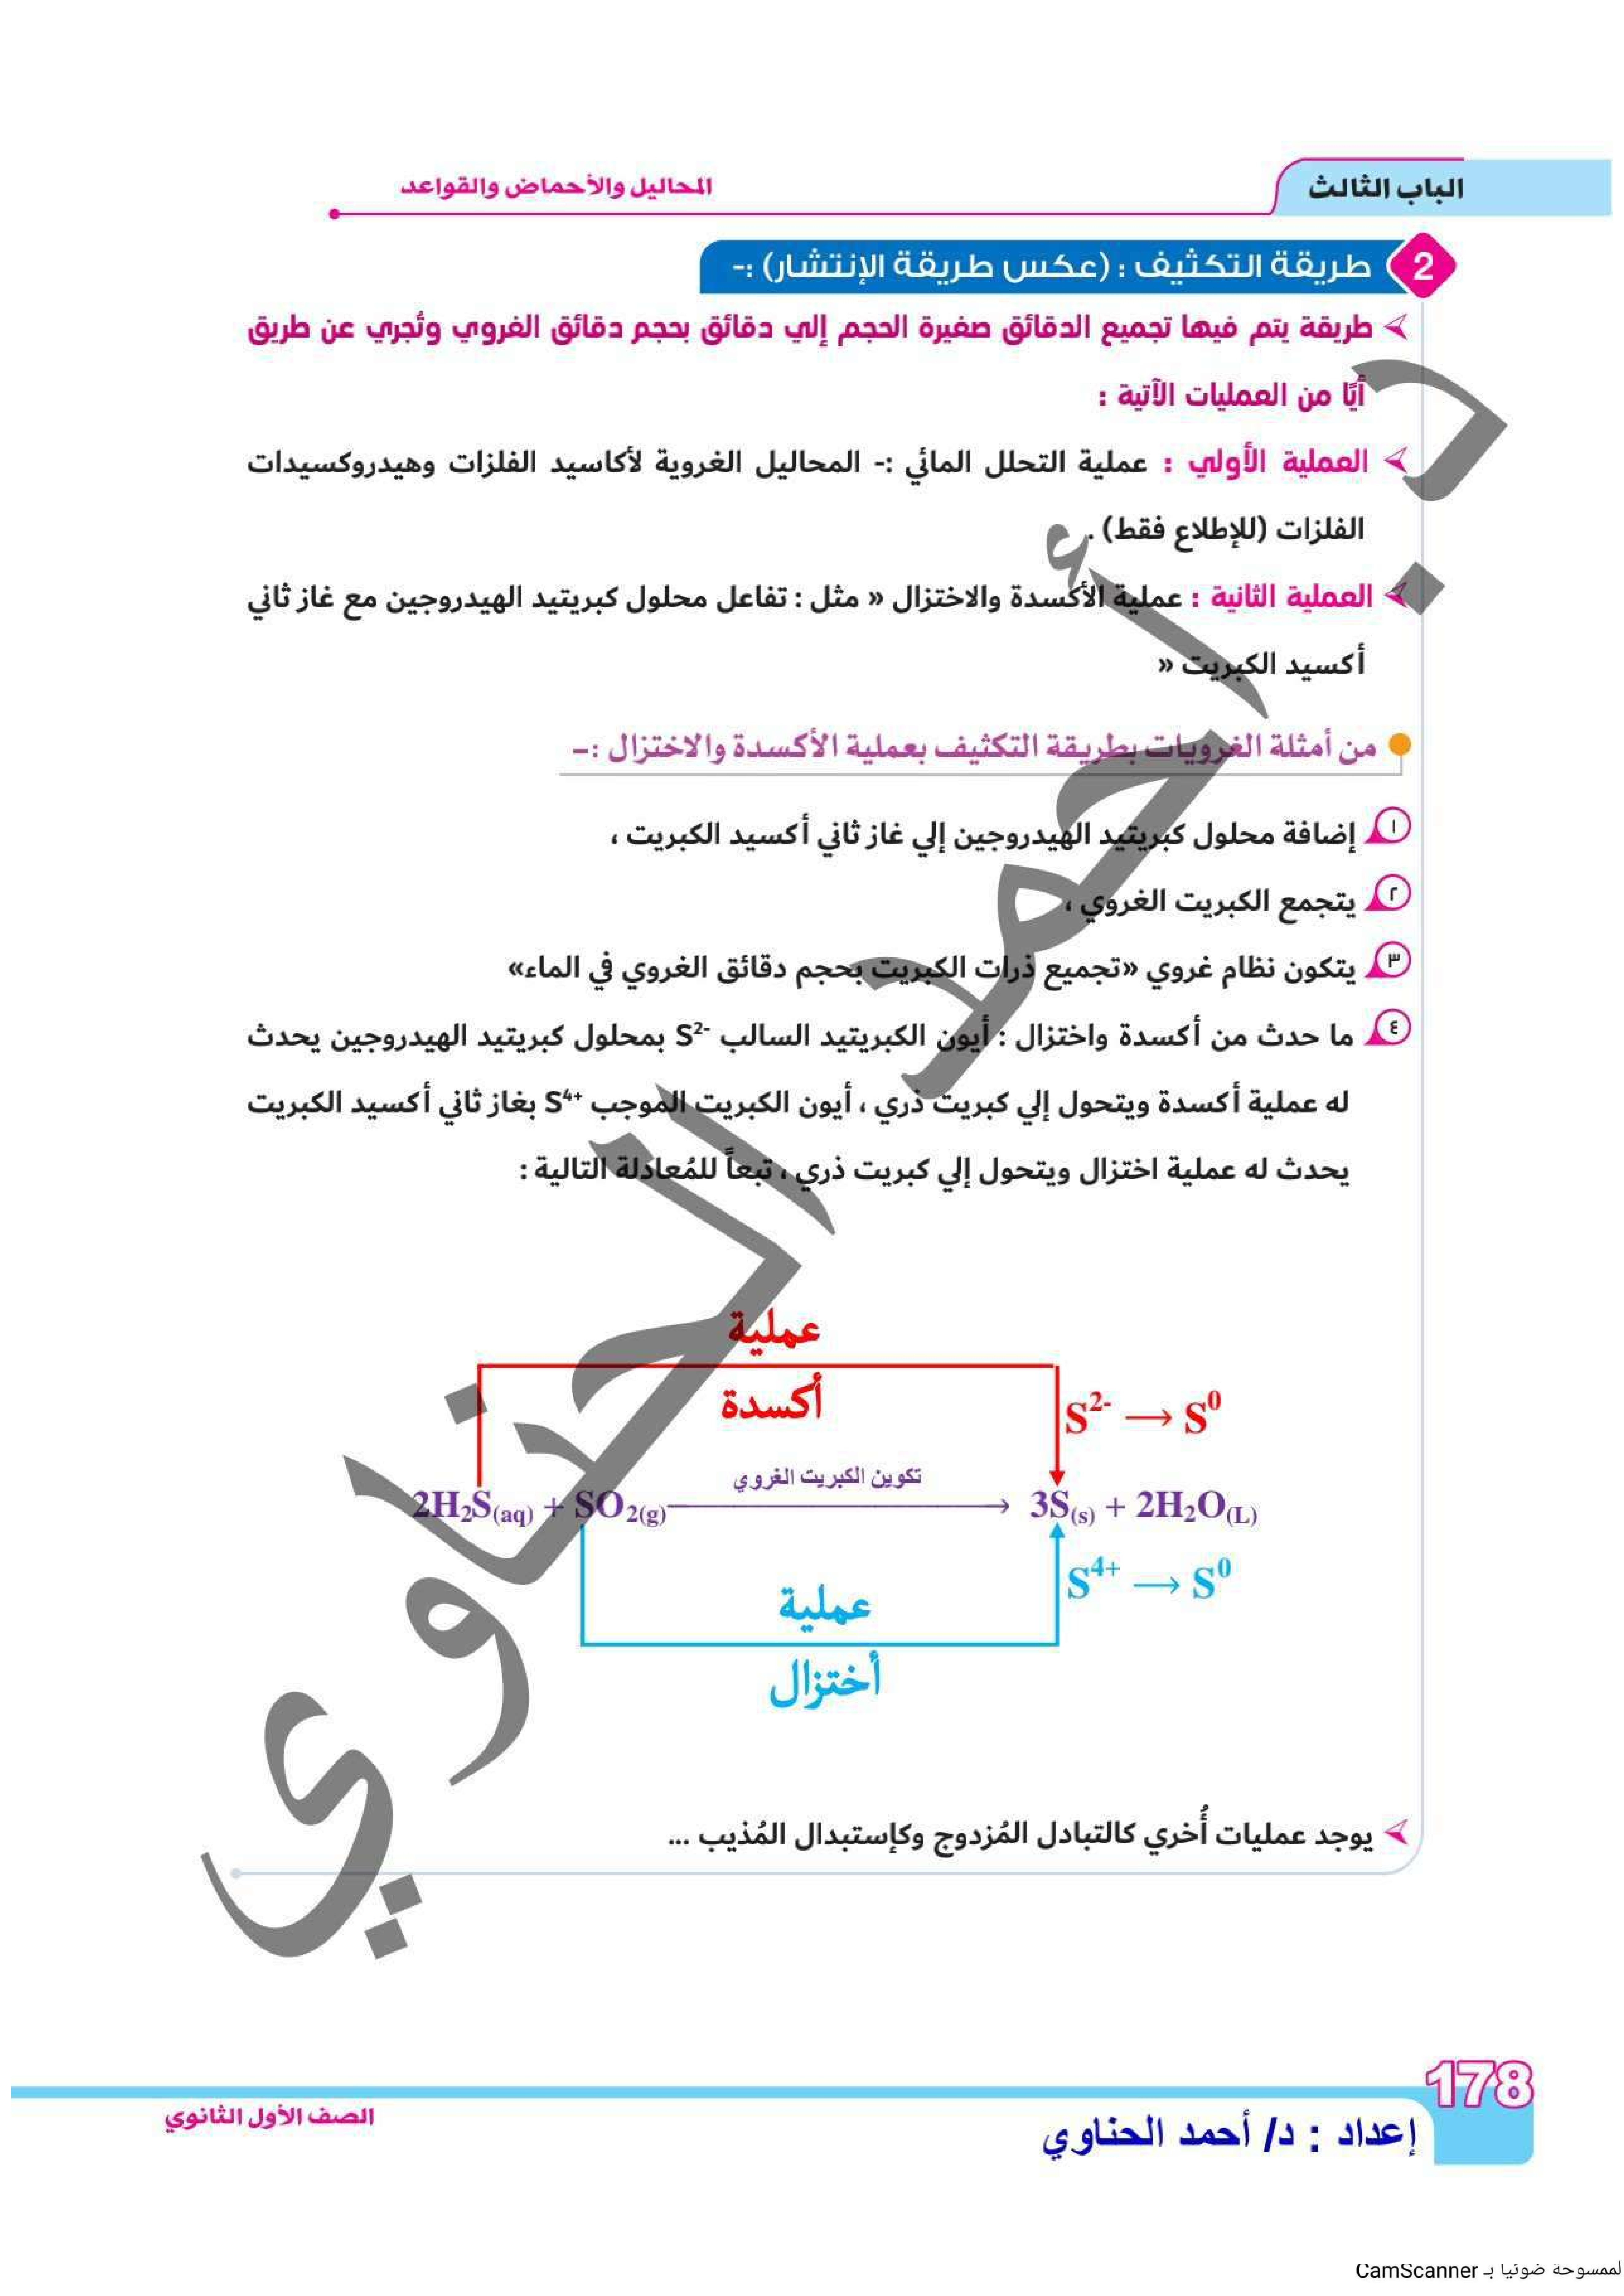 الباب الثالث
المحاليل والأحماض والقواعد
2 طريقة التكثيف : (عكس طريقة الإنتشار) :-
طريقة يتم فيها تجميع الدقائق صغيرة الحجم إلي دقائق بحجم دقائق الغروي وتُجري عن طريق
أيًا من العمليات الآتية :
العملية الأولي : عملية التحلل المائي :- المحاليل الغروية لأكاسيد الفلزات وهيدروكسيدات
الفلزات (للإطلاع فقط) .
العملية الثانية : عملية الأكسدة والاختزال » مثل : تفاعل محلول كبريتيد الهيدروجين مع غاز ثاني
أكسيد الكبريت »
من أمثلة الغرويات بطريقة التكثيف بعملية الأكسدة والاختزال :-
١ إضافة محلول كبريتيد الهيدروجين إلي غاز ثاني أكسيد الكبريت ،
٢ يتجمع الكبريت الغروي ،
٣ يتكون نظام غروي «تجميع ذرات الكبريت بحجم دقائق الغروي في الماء»
٤ ما حدث من أكسدة واختزال : أيون الكبريتيد السالب S²⁻ بمحلول كبريتيد الهيدروجين يحدث
له عملية أكسدة ويتحول إلي كبريت ذري ، أيون الكبريت الموجب S⁴⁺ بغاز ثاني أكسيد الكبريت
يحدث له عملية اختزال ويتحول إلي كبريت ذري ، تبعاً للمُعادلة التالية :
عملية
أكسدة
S²⁻ ⟶ S⁰
تكوين الكبريت الغروي
2H₂S(aq) + SO₂(g) ⟶ 3S(s) + 2H₂O(L)
S⁴⁺ ⟶ S⁰
عملية
أختزال
يوجد عمليات أُخري كالتبادل المُزدوج وكإستبدال المُذيب ...
د. أحمد الحناوي
178
إعداد : د/ أحمد الحناوي
الصف الأول الثانوي
لممسوحة ضوئيا بـ CamScanner